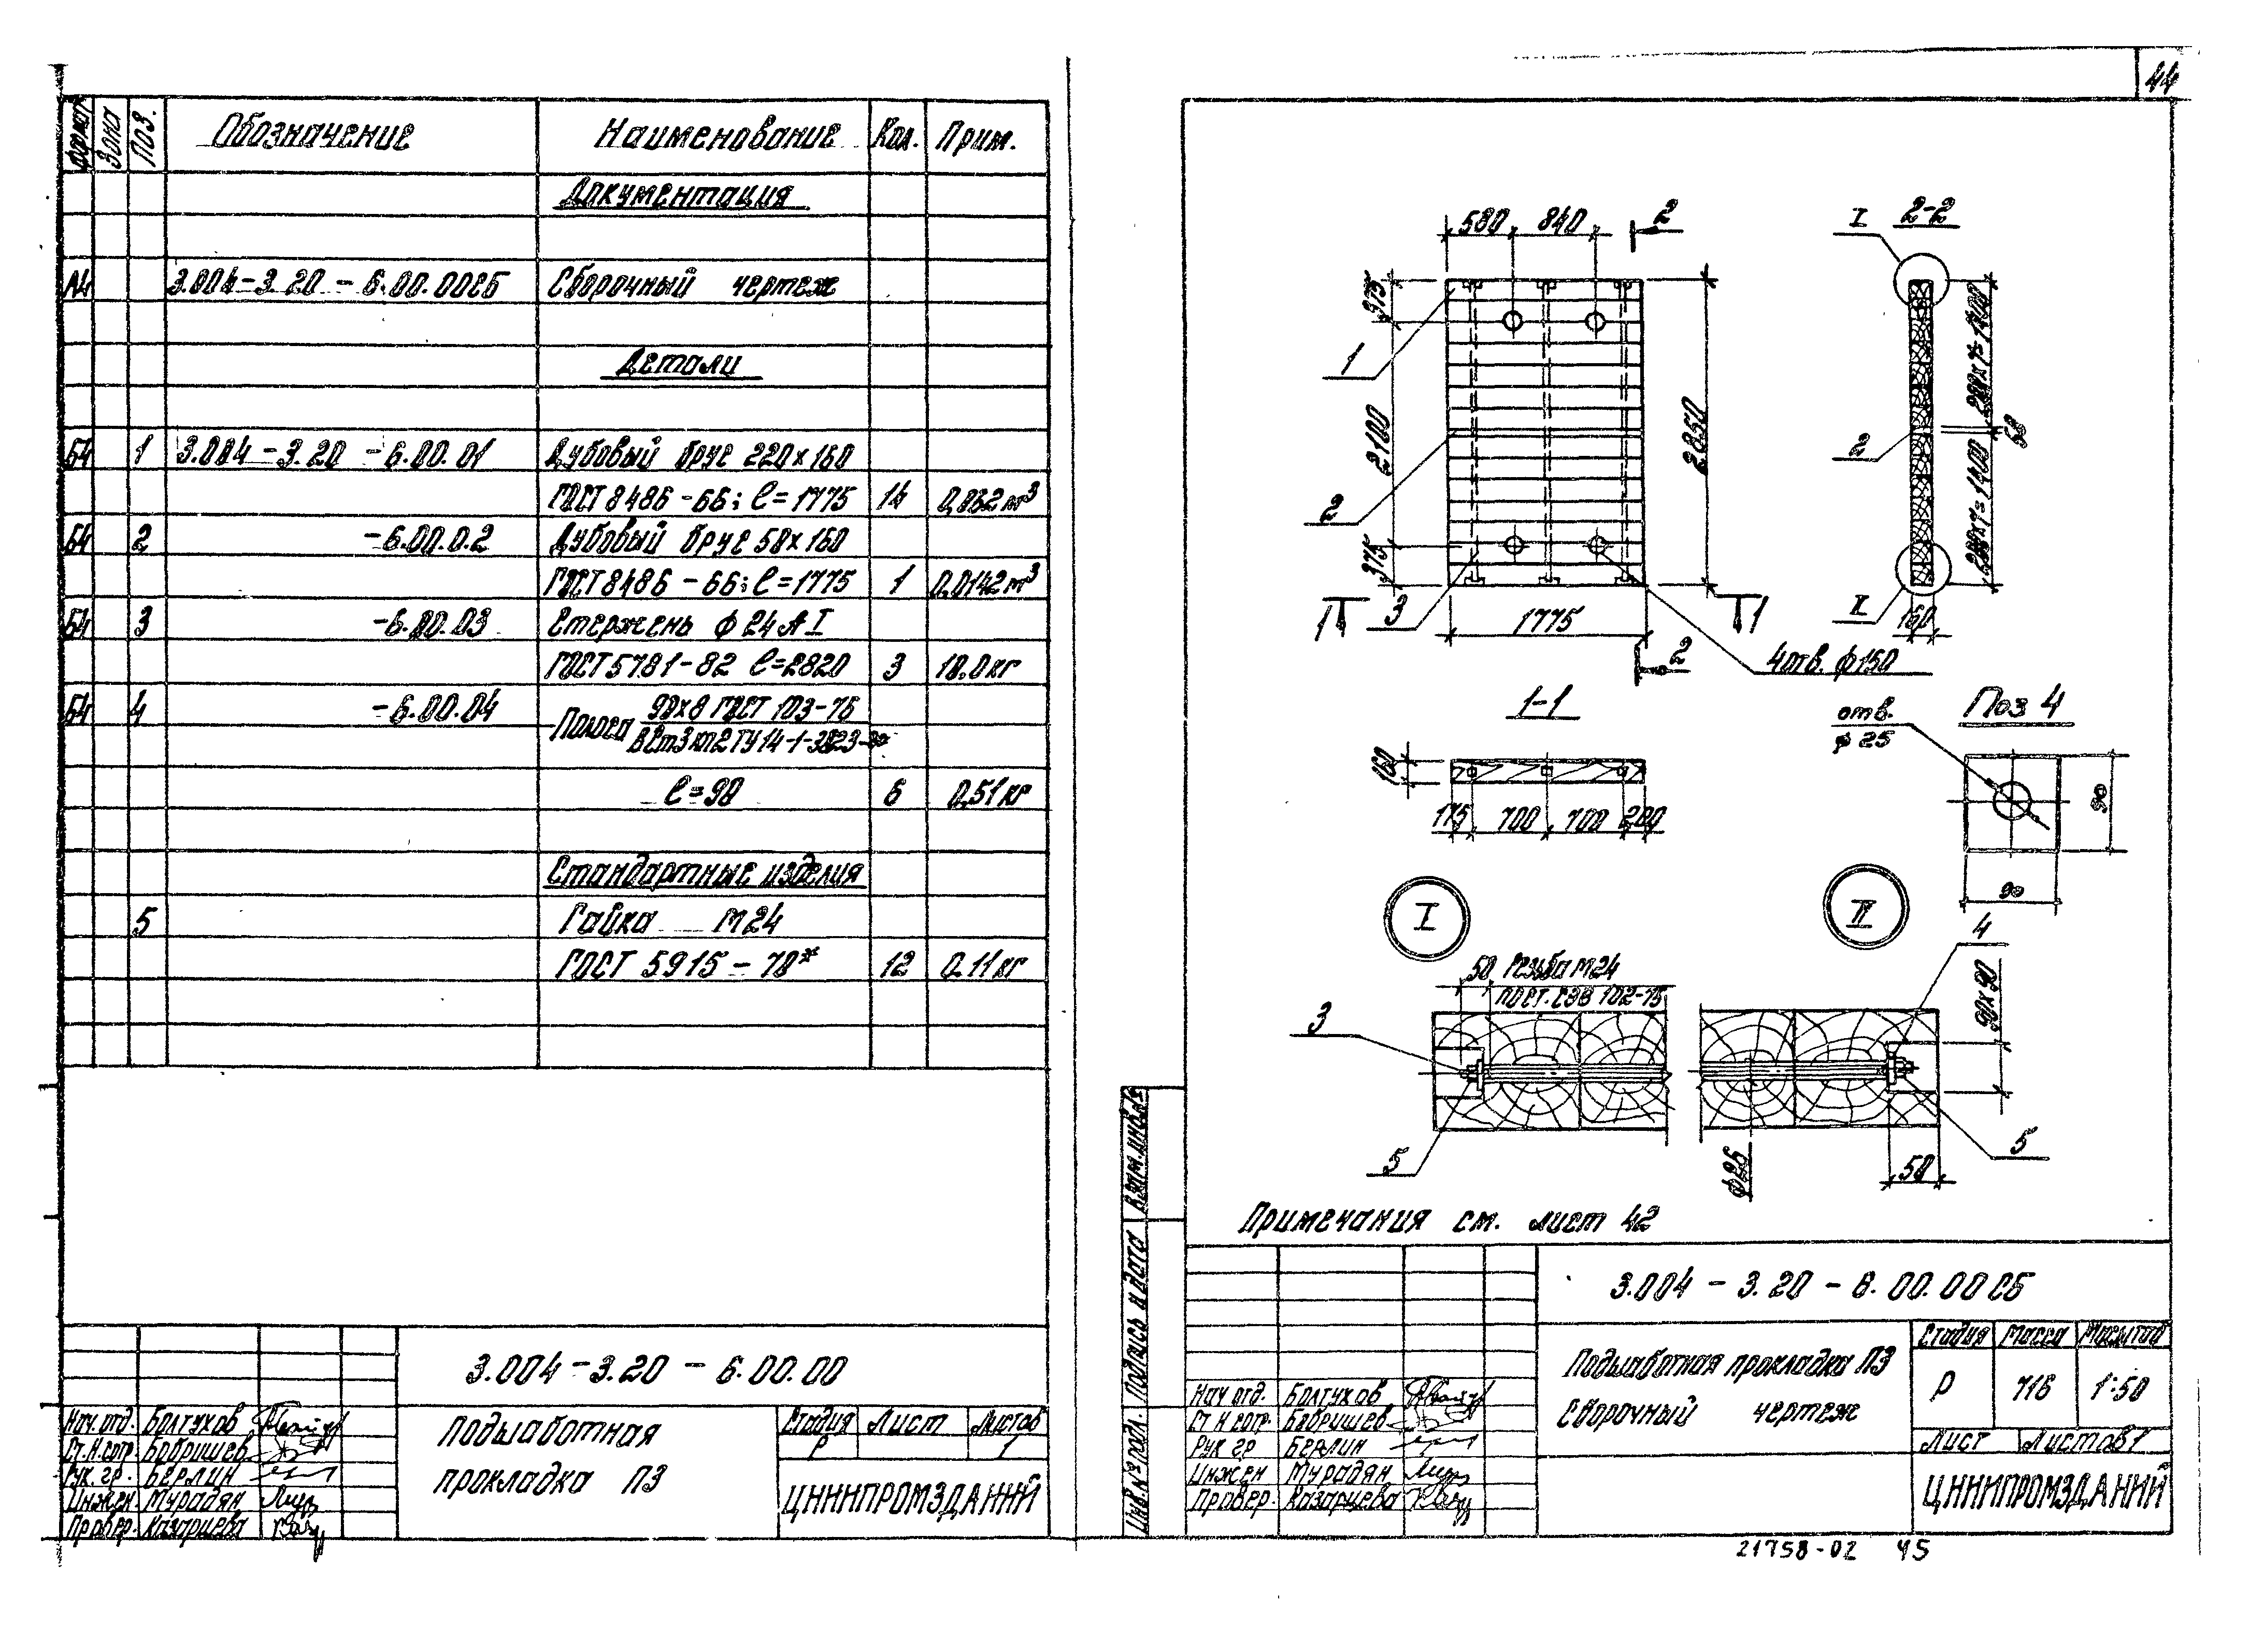 44
Формат Зона Поз. Обозначение Наименование Кол. Прим.
Документация
А4 3.004-3.20-6.00.00СБ Сборочный чертеж
Детали
Б4 1 3.004-3.20-6.00.01 Дубовый брус 220×160
ГОСТ 8486-66; ℓ=1775 14 0,062 м³
Б4 2 -6.00.0.2 Дубовый брус 50×160
ГОСТ 8486-66; ℓ=1775 1 0.0142 м³
Б4 3 -6.00.03 Стержень ф24АI
ГОСТ 5781-82 ℓ=2820 3 10.0 кг
Б4 4 -6.00.04 Полоса 90×8 ГОСТ 103-76
ВСт3кп2 ТУ14-1-3023-80
ℓ=90 6 0,51 кг
Стандартные изделия
5 Гайка М24
ГОСТ 5915-70* 12 0.11 кг
3.004-3.20-6.00.00
Подшаботная
прокладка П3
Стадия Лист Листов
Р 1
ЦНИИПРОМЗДАНИЙ
Нач.отд. Болтухов
Ст.н.сотр. Бабрышев
Рук.гр. Берлин
Инжен. Мурадян
Провер. Казарцева
580 840 2
375
1
2100
2
375
3
2850
1775
1 1
2
4 отв. ф150
I 2-2
200×7=1400
50
2
200×7=1400
II
160
1-1
160
175 700 700 200
отв.
ф 25
Поз 4
90
90
I
II
50 Резьба М24
по СТ. СЭВ 102-75
3
5
4
90×90
5
ф26
50
Примечания см. лист 42
Взам.инв.№
Подпись и дата
Инв.№ подл.
3.004-3.20-6.00.00СБ
Подшаботная прокладка П3
Сборочный чертеж
Стадия Масса Масштаб
Р 716 1:50
Лист Листов 1
ЦНИИПРОМЗДАНИЙ
Нач отд. Болтухов
Ст н сотр. Бабрышев
Рук гр Берлин
Инжен Мурадян
Провер. Казарцева
21758-02 45